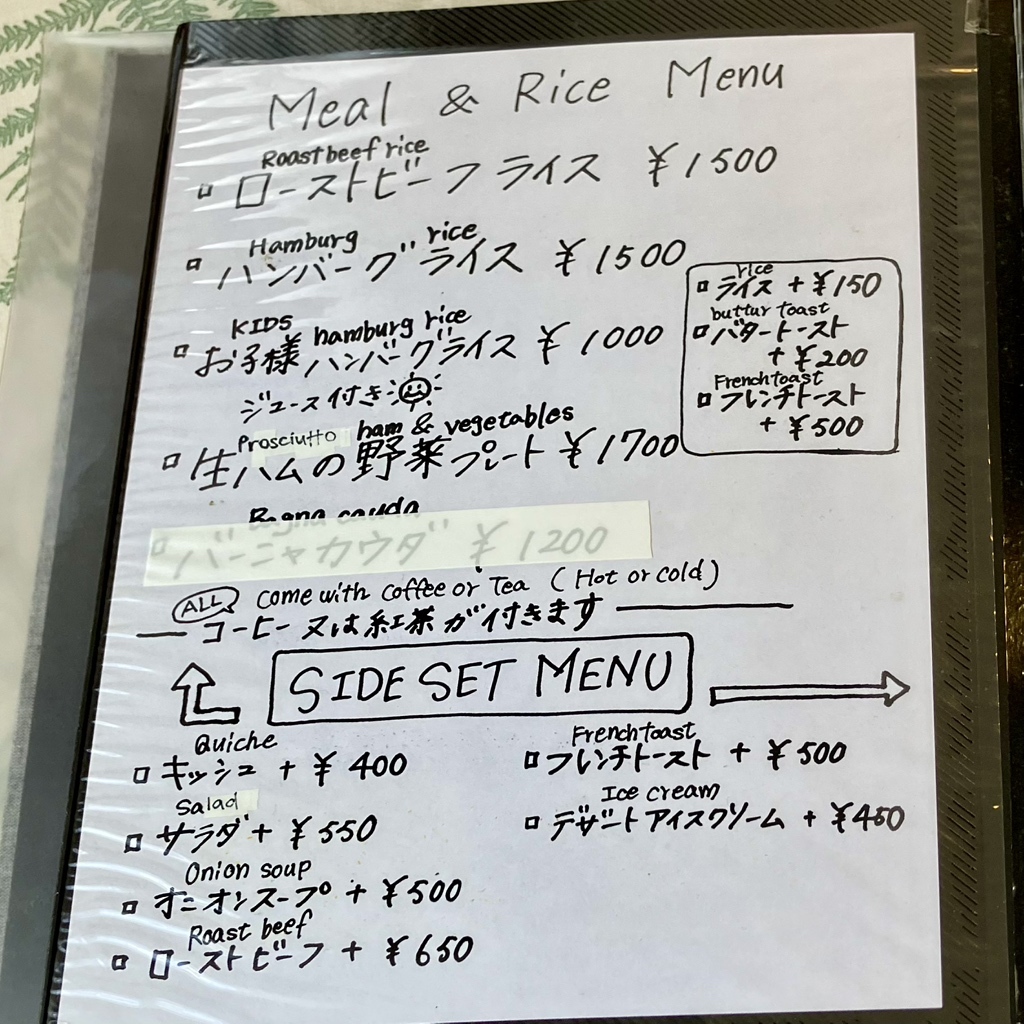 Meal & Rice Menu
Roastbeef rice
ローストビーフ ライス ¥1500
Hamburg rice
ハンバーグ ライス ¥1500
KIDS hamburg rice
お子様 ハンバーグライス ¥1000
ジュース付き
Prosciutto ham & vegetables
生ハムの野菜プレート ¥1700
rice
ライス +¥150
buttur toast
バタートースト
+¥200
Frenchtoast
フレンチトースト
+¥500
Bagna cauda
バーニャカウダ ¥1200
ALL come with coffee or Tea (Hot or cold)
コーヒー又は紅茶が付きます
SIDE SET MENU
Quiche
キッシュ + ¥400
Salad
サラダ + ¥550
Onion soup
オニオンスープ + ¥500
Roast beef
ローストビーフ + ¥650
Frenchtoast
フレンチトースト + ¥500
Ice cream
デザートアイスクリーム + ¥450